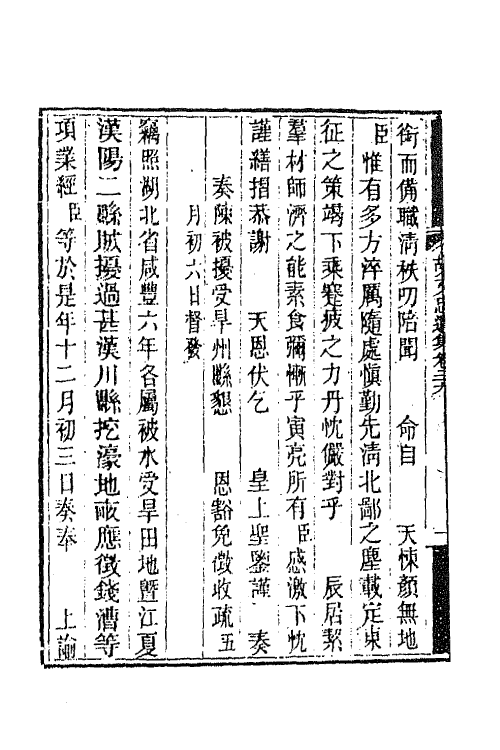 銜而備職清秩叨陪聞　命自　天悚顏無地
臣惟有多方淬厲隨處慎勤先清北鄙之塵載定東
征之策竭下乘蹇疲之力丹忱儼對乎　辰居絜
羣材師濟之能素食彌慚乎寅亮所有臣感激下忱
謹繕摺恭謝　天恩伏乞　皇上聖鑒謹　奏
奏陳被擾受旱州縣懇　恩豁免徵收疏五
月初六日督發
竊照湖北省咸豐六年各屬被水受旱田地暨江夏
漢陽二縣賊擾過甚漢川縣挖濠地畝應徵錢漕等
項業經臣等於是年十二月初三日奏奉　上諭